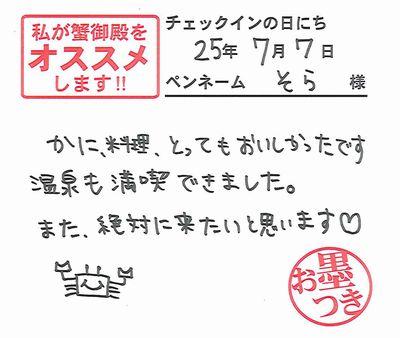 私が蟹御殿を
オススメ
します!!
チェックインの日にち
25年 7月 7日
ペンネーム そら 様
かに、料理、とってもおいしかったです
温泉も満喫できました。
また、絶対に来たいと思います♡
お墨つき